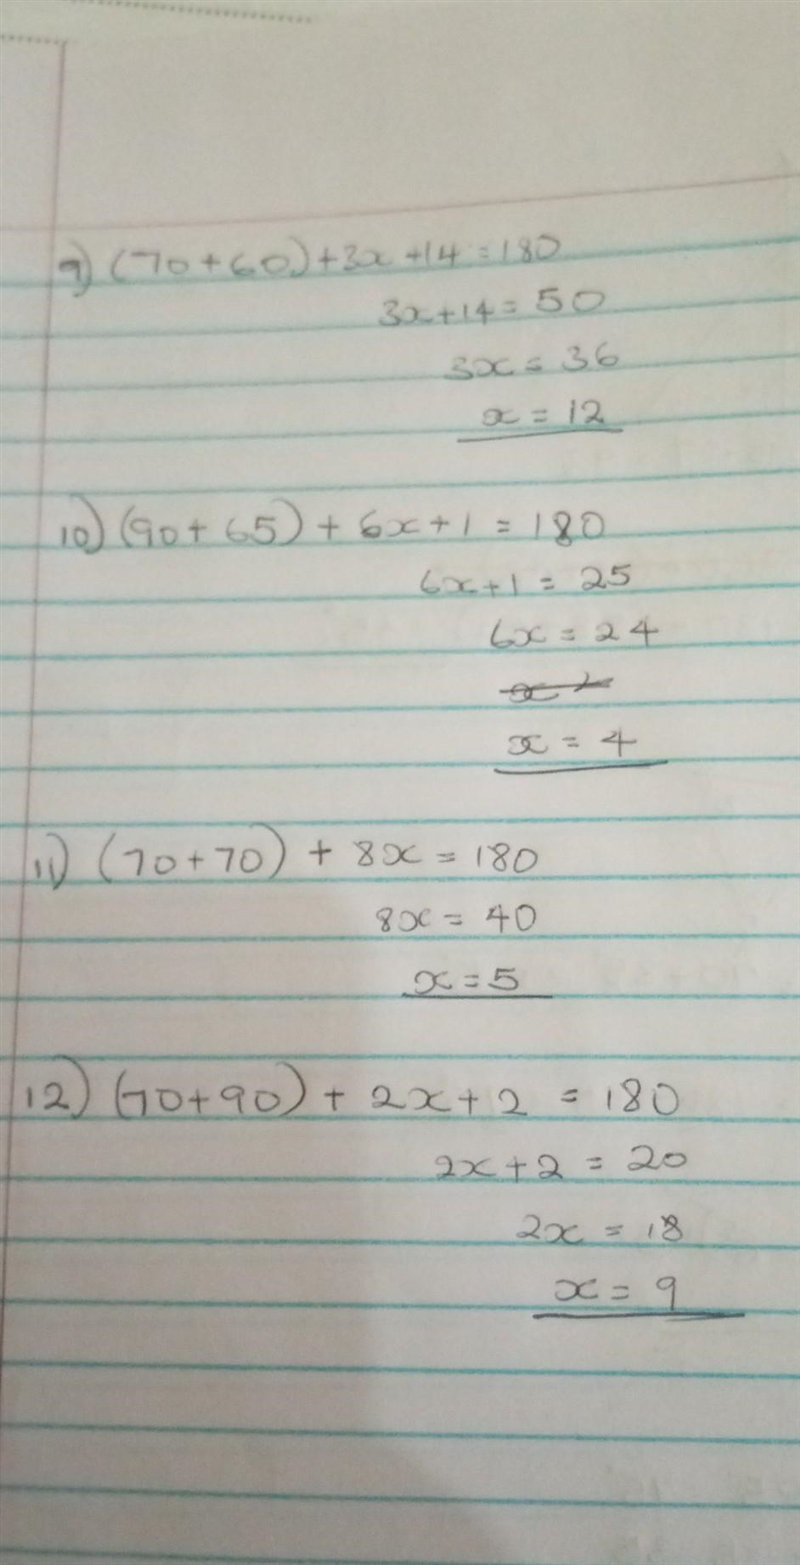 9) (70+60)+3x+14=180
3x+14=50
3x=36
x=12
10) (90+65)+6x+1=180
6x+1=25
6x=24
x=4
11) (70+70)+8x=180
8x=40
x=5
12) (70+90)+2x+2=180
2x+2=20
2x=18
x=9